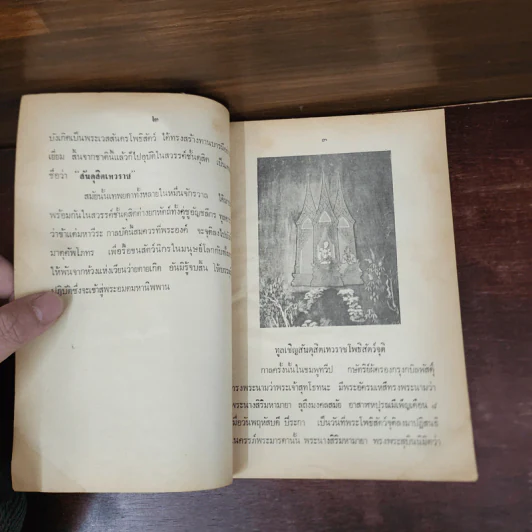 ๒
บังเกิดเป็นพระเวสสันดรโพธิสัตว์ ได้ทรงสร้างทานบารมี
เยี่ยม สิ้นจากชาตินั้นแล้วก็ไปอุบัติในสวรรค์ชั้นดุสิต
ชื่อว่า "สันดุสิตเทวราช"
สมัยนั้นเทพยดาทั้งหลายในหมื่นจักรวาล
พร้อมกันในสวรรค์ชั้นดุสิตต่างยกหัตถ์ทั้งคู่ชูอัญชลีกร
ว่าข้าแต่มหาวีระ กาลบัดนี้สมควรที่พระองค์ จะจุติลงไป
มาตุคัพโภทร เพื่อรื้อขนสัตว์นิกรในมนุษย์โลกกับทั้ง
ให้พ้นจากห้วงแห่งเวียนว่ายตายเกิด อันมิรู้จบสิ้น
ปฏิบัติซึ่งจะเข้าสู่พระอมตมหานิพพาน
๓
ทูลเชิญสันดุสิตเทวราชโพธิสัตว์จุติ
กาลครั้งนั้นในชมพูทวีป กษัตริย์ผู้ครองกรุงกบิลพัสดุ์
ทรงพระนามว่าพระเจ้าสุทโธทนะ มีพระอัครมเหสีทรงพระนามว่า
พระนางสิริมหามายา ลุถึงมงคลสมัย อาสาฬหปุรณมีเพ็ญเดือน ๘
เมื่อวันพฤหัสบดี ปีระกา เป็นวันที่พระโพธิสัตว์จุติลงมาปฏิสนธิ
ในครรภ์พระมารดานั้น พระนางสิริมหามายา ทรงพระสุบินนิมิตว่า